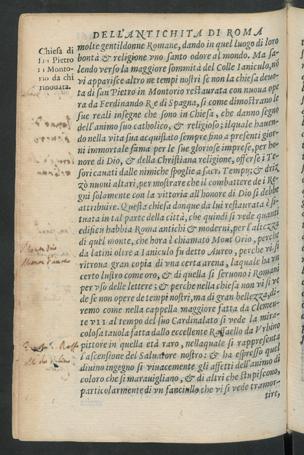 DELL'ANTICHITA DI ROMA
Chiesa di
San Pietro
in Montorio
da chi
rinouata.
molte gentildonne Romane, dando in quel luogo di loro
bontà & religione vno santo odore al mondo. Ma salendo
verso la maggiore sommità del Colle Ianiculo, nō
vi apparisce altro ne tempi nostri se non la chiesa deuota
di san Pietro in Montorio restaurata con nuoua opera
da Ferdinando Re di Spagna, si come dimostrano le
sue reali insegne che sono in Chiesa, che danno segno
dell'animo suo catholico, & religioso; ilquale hauendo
nella vita sua acquistato sempre fino a presenti giorni
immortale fama per le sue gloriose imprese, per honore
di Dio, & della Christiana religione, offerse i Tesori
cauati dalle nimiche spoglie a sacri Tempij; & drizzò
nuoui altari, per mostrare che il combattere de i Regi
solamente con la vittoria all'honore di Dio si debbe
attribuire. Questa chiesa dunque da lui restaurata è situata
in tal parte della città, che quindi si vede quanti
edifici habbia Roma antichi & moderni, per l'altezza
di quel monte, che hora è chiamato Mont'Orio, perche
da latini oltre a Ianiculo fu detto Aureo, perche vi si
ritroua gran copia di vna certa arena, laquale ha vn
certo lustro come oro, & di quella si seruono i Romani
per vso delle lettere: & perche nella chiesa non vi si vede
se non opere de tempi nostri, ma di gran bellezza, diremo
come nella cappella maggiore fatta da Clemente
VII al tempo del suo Cardinalato si vede la miracolosa
tauola fatta dallo eccellente Raffaello da Vrbino
pittore in questa età raro, nellaquale si rappresenta
l'ascensione del Saluatore nostro: & ha espresso quel
diuino ingegno sì viuacemente gli affetti dell'animo di
coloro che si marauigliano, & di altri che stupiscono,
particolarmente di vn fanciullo che vi si vede tramortire,